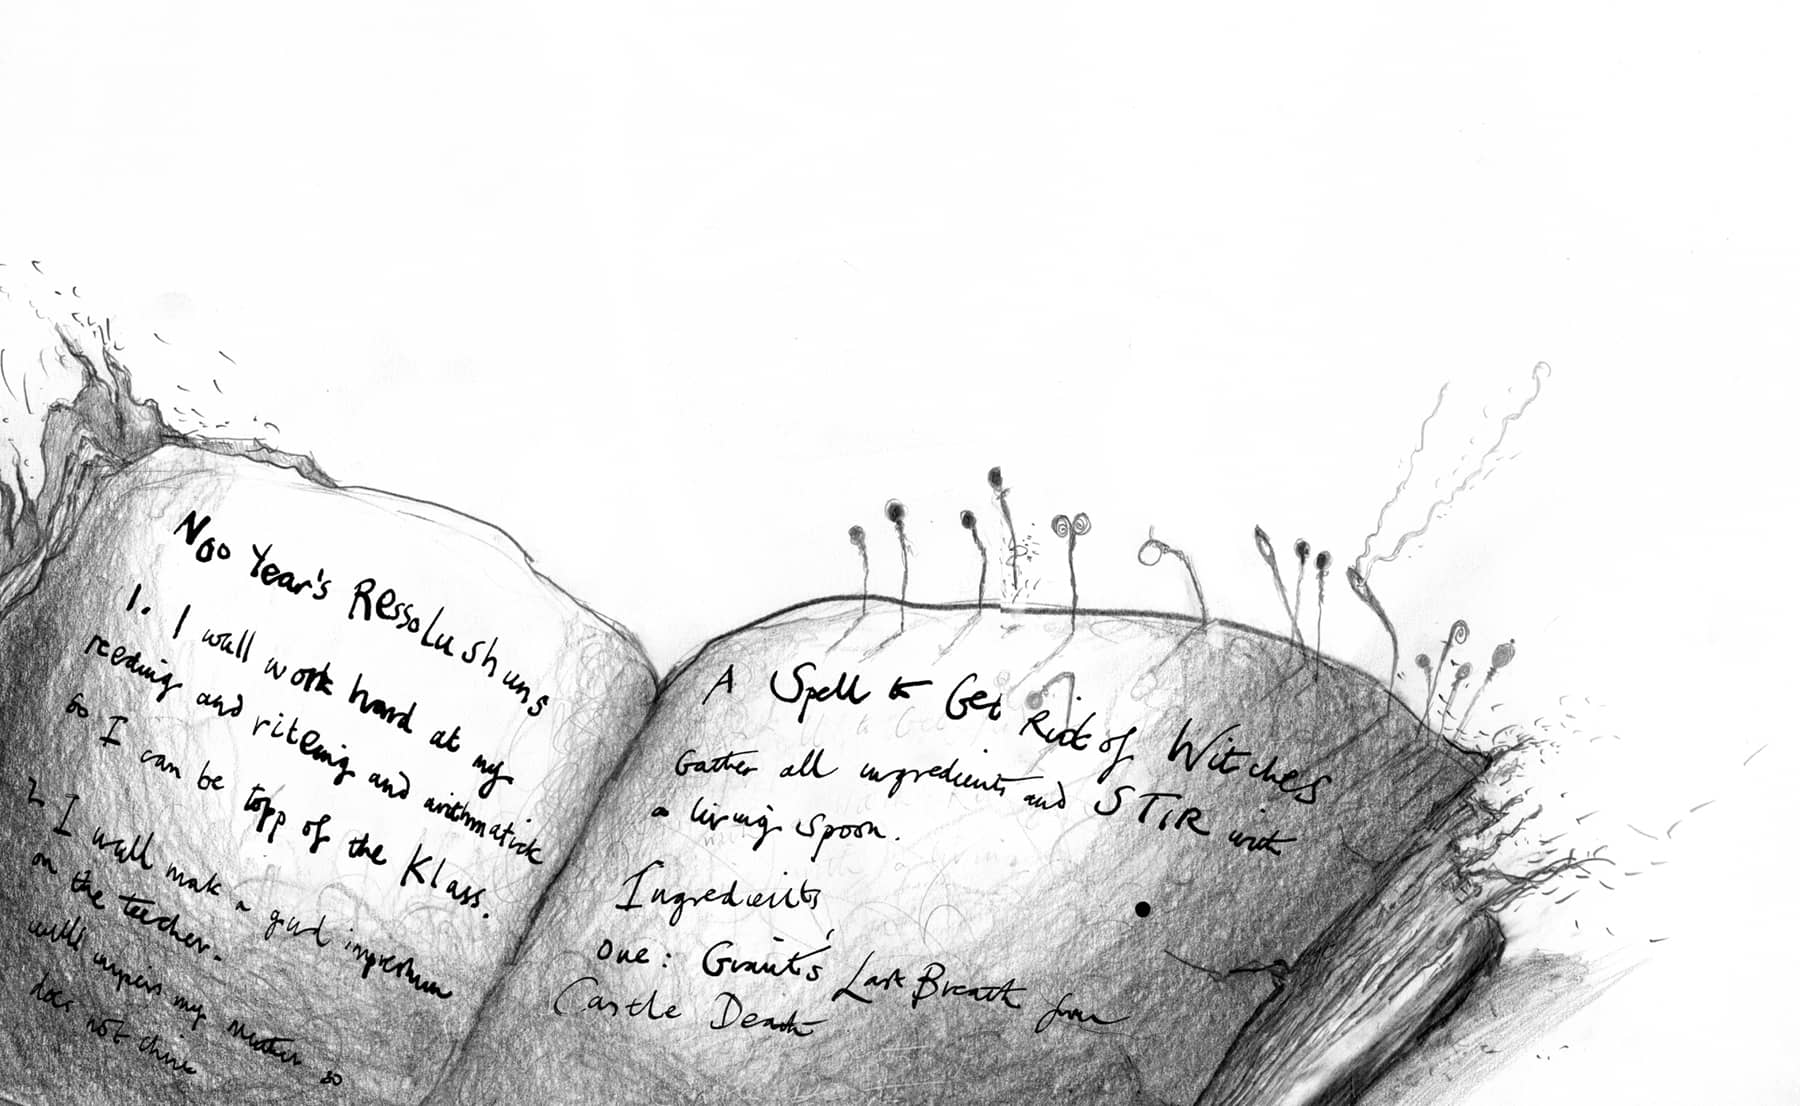 Noo Year's Ressolushuns
1. I wull work hard at my
reeding and riteing and arithmatick
so I can be topp of the Klass.
2 I wull mak a gud impreshun
on the teecher.
wull my so
does not
A Spell to Get Rid of Witches
Gather all ingredients and STIR with
a living spoon.
Ingredients
one: Giant's Last Breath from
Castle Death